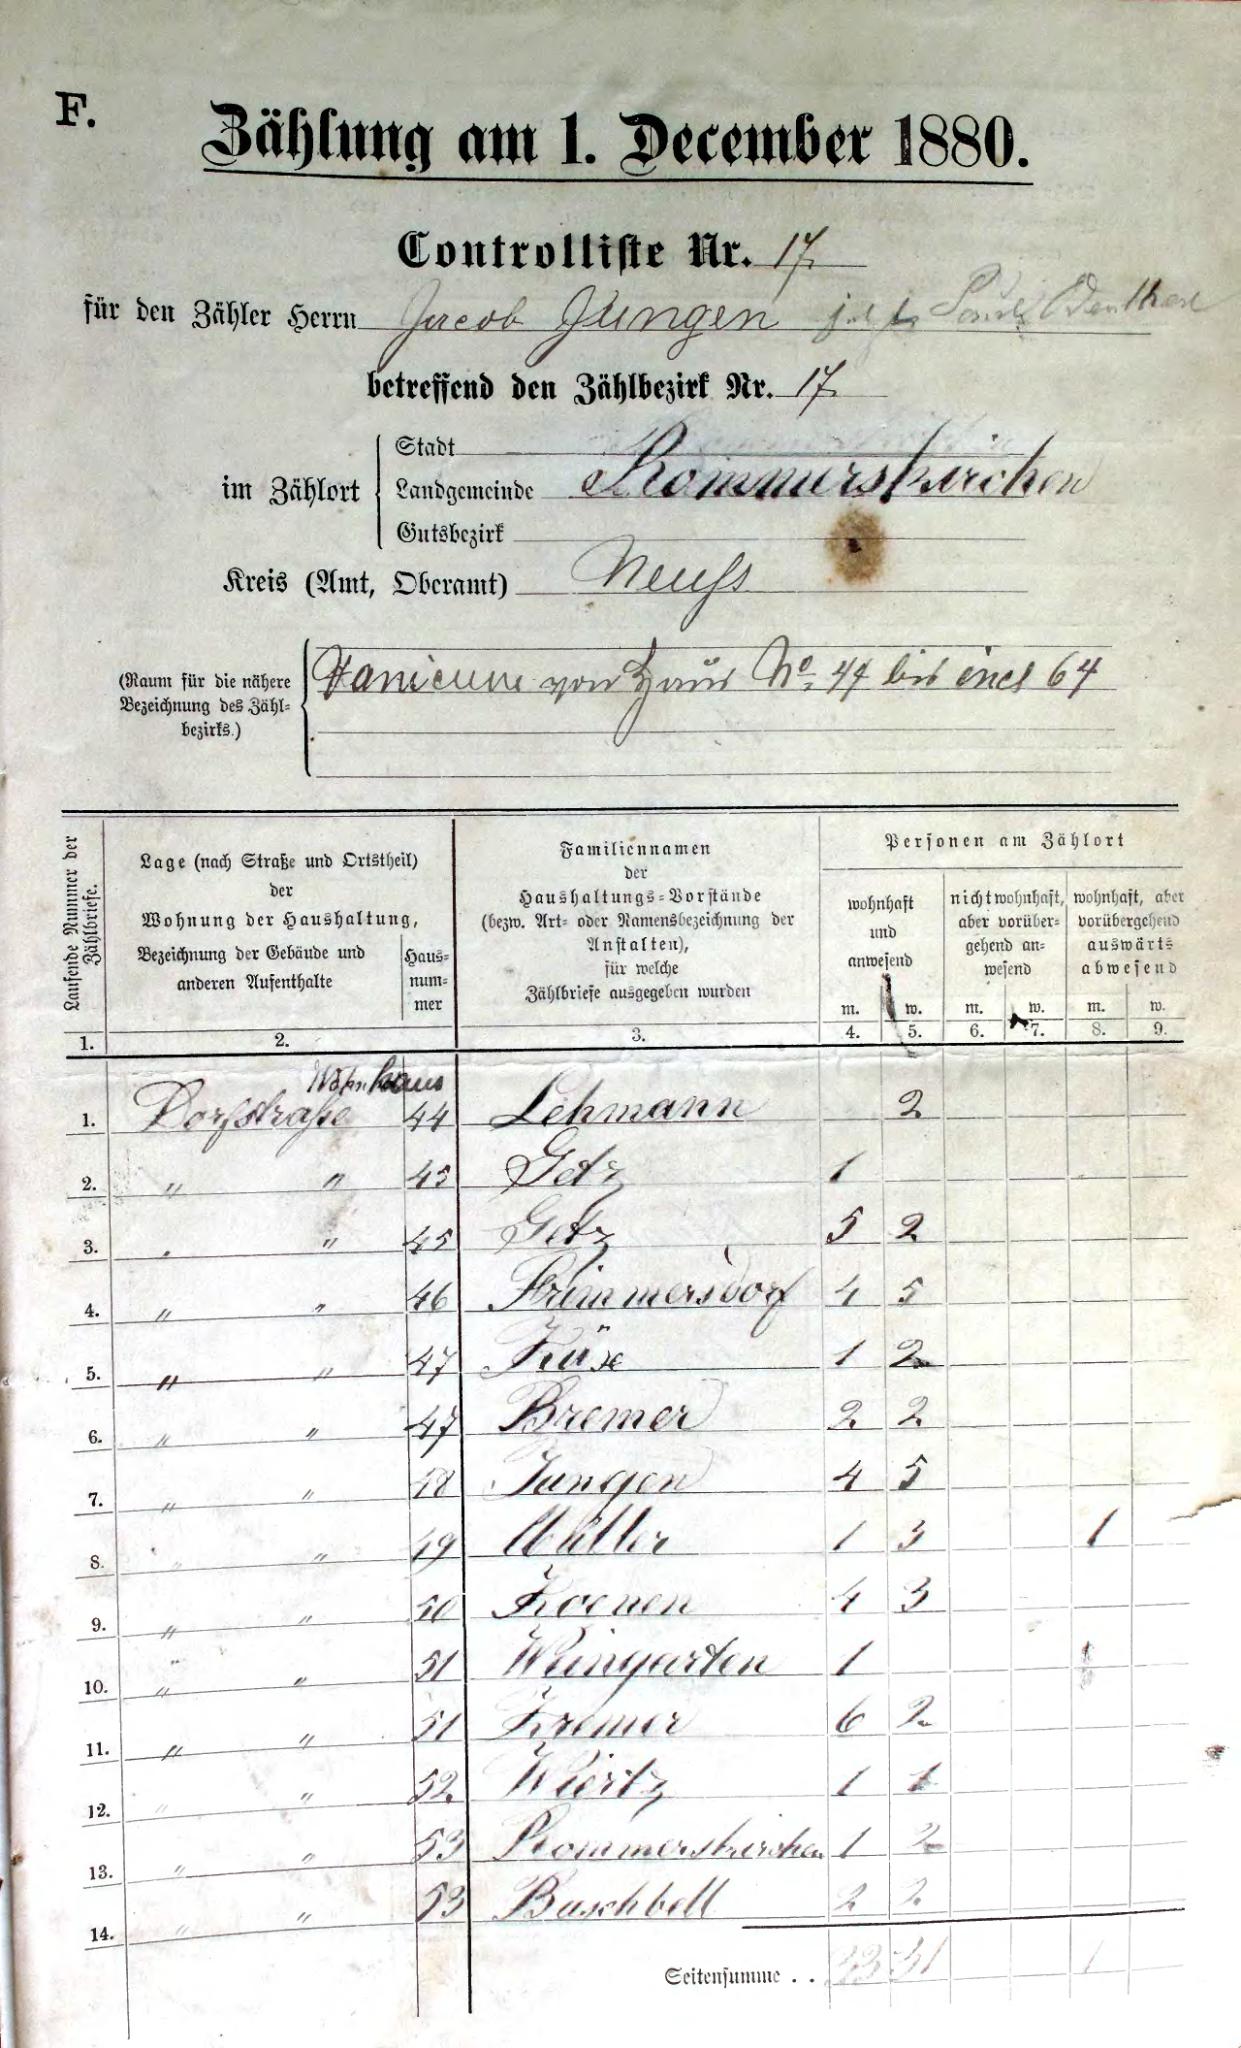 F.
Zählung am 1. December 1880.
Controlliste Nr. 17
für den Zähler Herrn Jacob Jüngen
betreffend den Zählbezirk Nr. 17
im Zählort
Stadt
Landgemeinde Rommerskirchen
Gutsbezirk
Kreis (Amt, Oberamt) Neuss
(Raum für die nähere Bezeichnung des Zähl-
bezirks.)
von Haus No. 44 bis incl 64
Laufende Nummer der Zählbriefe.
Lage (nach Straße und Ortstheil)
der
Wohnung der Haushaltung,
Bezeichnung der Gebäude und
anderen Aufenthalte
Haus-
num-
mer
Familiennamen
der
Haushaltungs-Vorstände
(bezw. Art- oder Namensbezeichnung der
Anstalten),
für welche
Zählbriefe ausgegeben wurden
Personen am Zählort
wohnhaft
und
anwesend
nicht wohnhaft,
aber vorüber-
gehend an-
wesend
wohnhaft, aber
vorübergehend
auswärts
abwesend
m. w. m. w. m. w.
1. 2. 3. 4. 5. 6. 7. 8. 9.
Wohnhaus
1. Dorfstraße 44 Lehmann 2
2. " " 45 Getz 1
3. " " 45 Getz 5 2
4. " " 46 Frimmersdorf 4 5
5. " " 47 Käse 1 2
6. " " 47 Bremer 2 2
7. " " 48 Jungen 4 5
8. " " 49 Müller 1 3 1
9. " " 50 Koenen 4 3
10. " " 51 Weingarten 1
11. " " 51 Kremer 6 2
12. " " 52 Wiertz 1 1
13. " " 53 Rommerskirchen 1 2
14. " " 53 Buschbell 2 2
Seitensumme . . 33 31 1